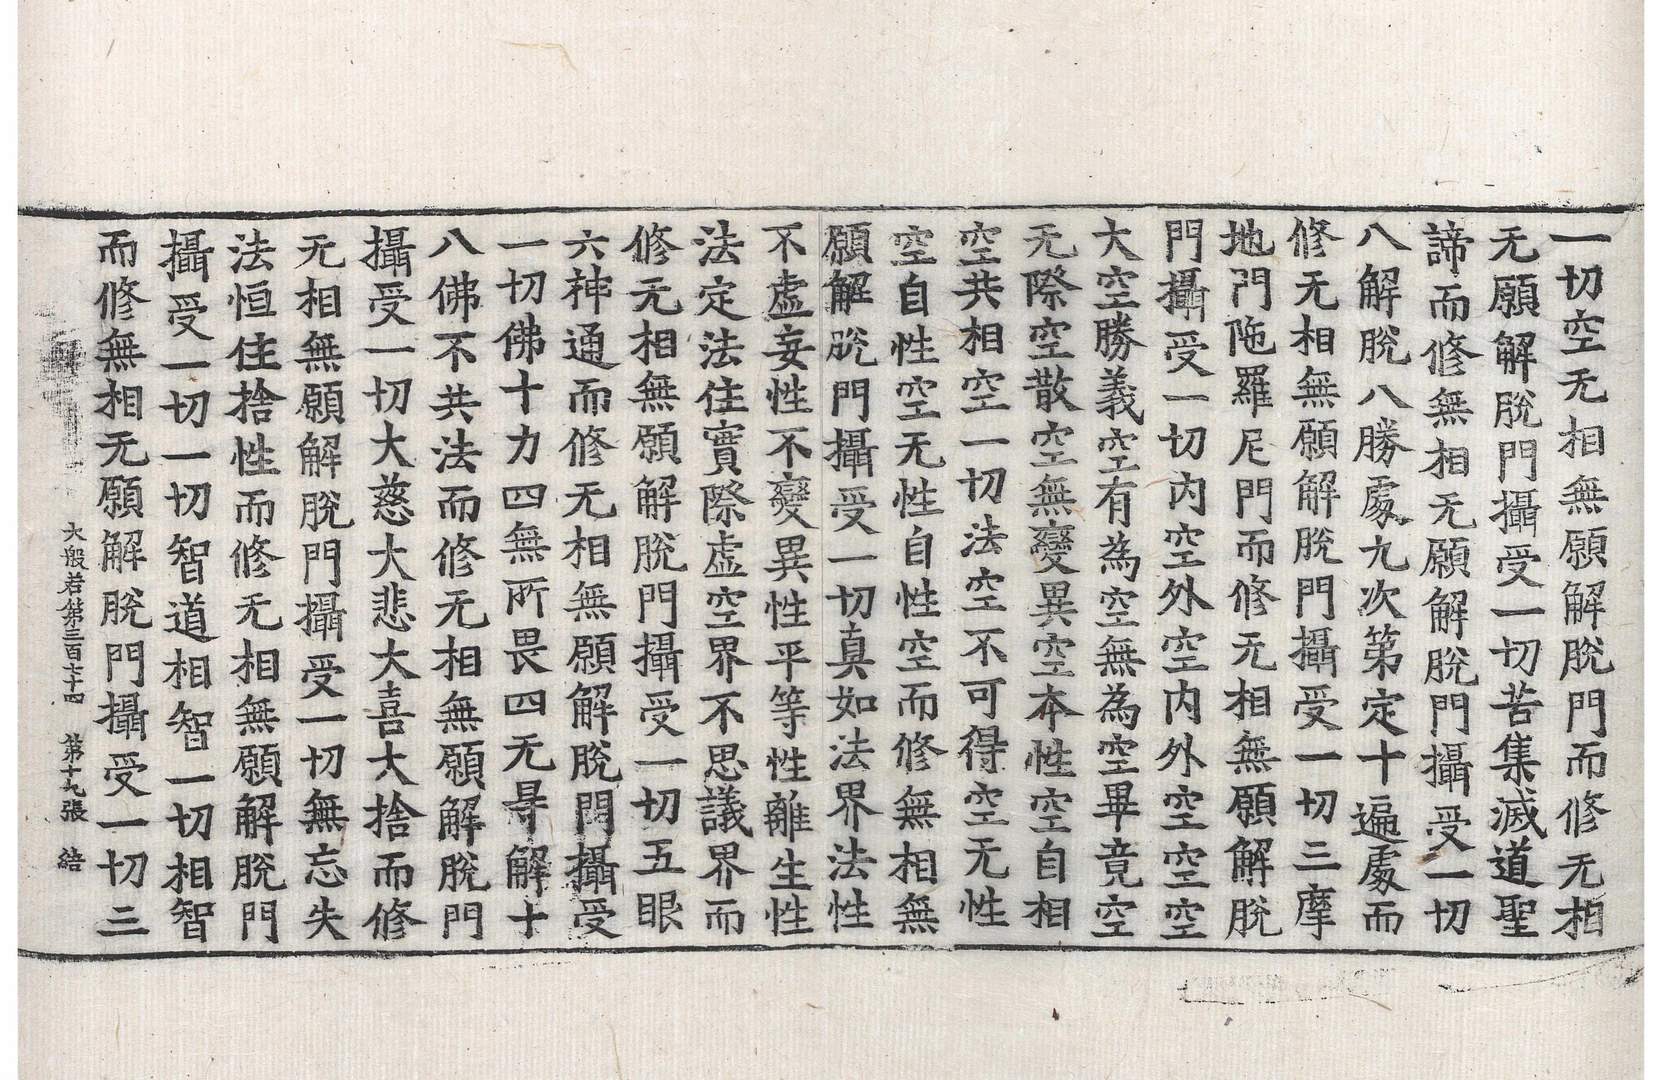 一切空无相無願解脫門而修无相
无願解脫門攝受一切苦集滅道聖
諦而修無相无願解脫門攝受一切
八解脫八勝處九次第定十遍處而
修无相無願解脫門攝受一切三摩
地門陁羅尼門而修无相無願解脫
門攝受一切內空外空內外空空空
大空勝義空有為空無為空畢竟空
无際空散空無變異空本性空自相
空共相空一切法空不可得空无性
空自性空无性自性空而修無相無
願解脫門攝受一切真如法界法性
不虛妄性不變異性平等性離生性
法定法住實際虛空界不思議界而
修无相無願解脫門攝受一切五眼
六神通而修无相無願解脫門攝受
一切佛十力四無所畏四无㝵解十
八佛不共法而修无相無願解脫門
攝受一切大慈大悲大喜大捨而修
无相無願解脫門攝受一切無忘失
法恒住捨性而修无相無願解脫門
攝受一切一切智道相智一切相智
而修無相无願解脫門攝受一切三
大般若第三百七十四 第十九張 結